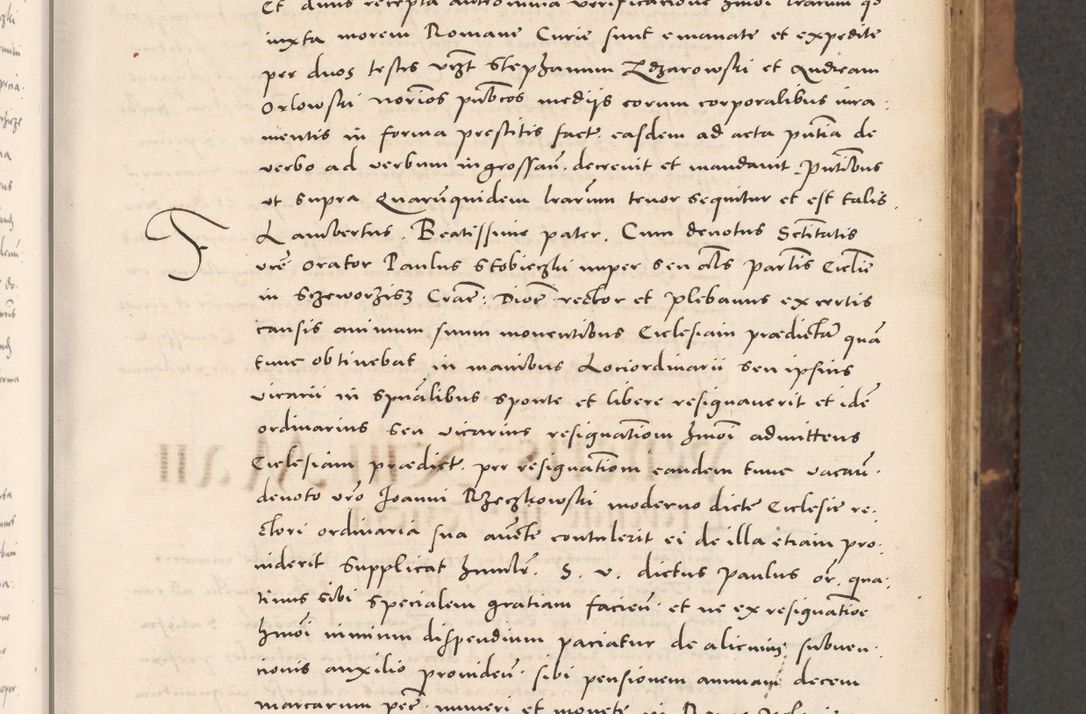 Et dnus recepta
iuxta morem Romane Curie sunt emanate et expedite
per duos testes vrzt Stephanum Zdzarowski et Andream
Orlowski norios publicos medijs eorum corporalibus iura:
mentis in forma prestitis fact. easdem ad acta pntia de
verbo ad verbum ingrossan. decrevit et mandavit. Pntibus
ut supra Quarumquidem lrarum tenor sequitur et est talis.
Lambertus. Beatissime pater. Cum devotus Sctitatis
vre orator Paulus Stobieczki nuper seu als parlis Ecclie
in Sczeworzisz Craen: Dioec: rector et plebanus ex certis
causis animum suum moventibus Ecclesiam prædictam quam
tunc obtinebat in manibus Lociordinarii seu ipsius
vicarii in spualibus sponte et libere resignaverit et idem
ordinarius seu vicarius resignationem hmoi admittens
Ecclesiam prædict. per resignationem eandem tunc vacan.
devoto vro Joanni Rzeczkowski moderno dicte Ecclesie re:
ctori ordinaria sua aucte contulerit ei de illa etiam pro:
viderit Supplicat humilr. S. v. dictus Paulus or. qua:
tinus sibi specialem gratiam facien. et ne ex resignatioe
hmoi nimium dispendium paciatur de alicuius subven:
cionis auxilio providen. sibi pensionem annuam decem
marcarum pec. numeri et monete in